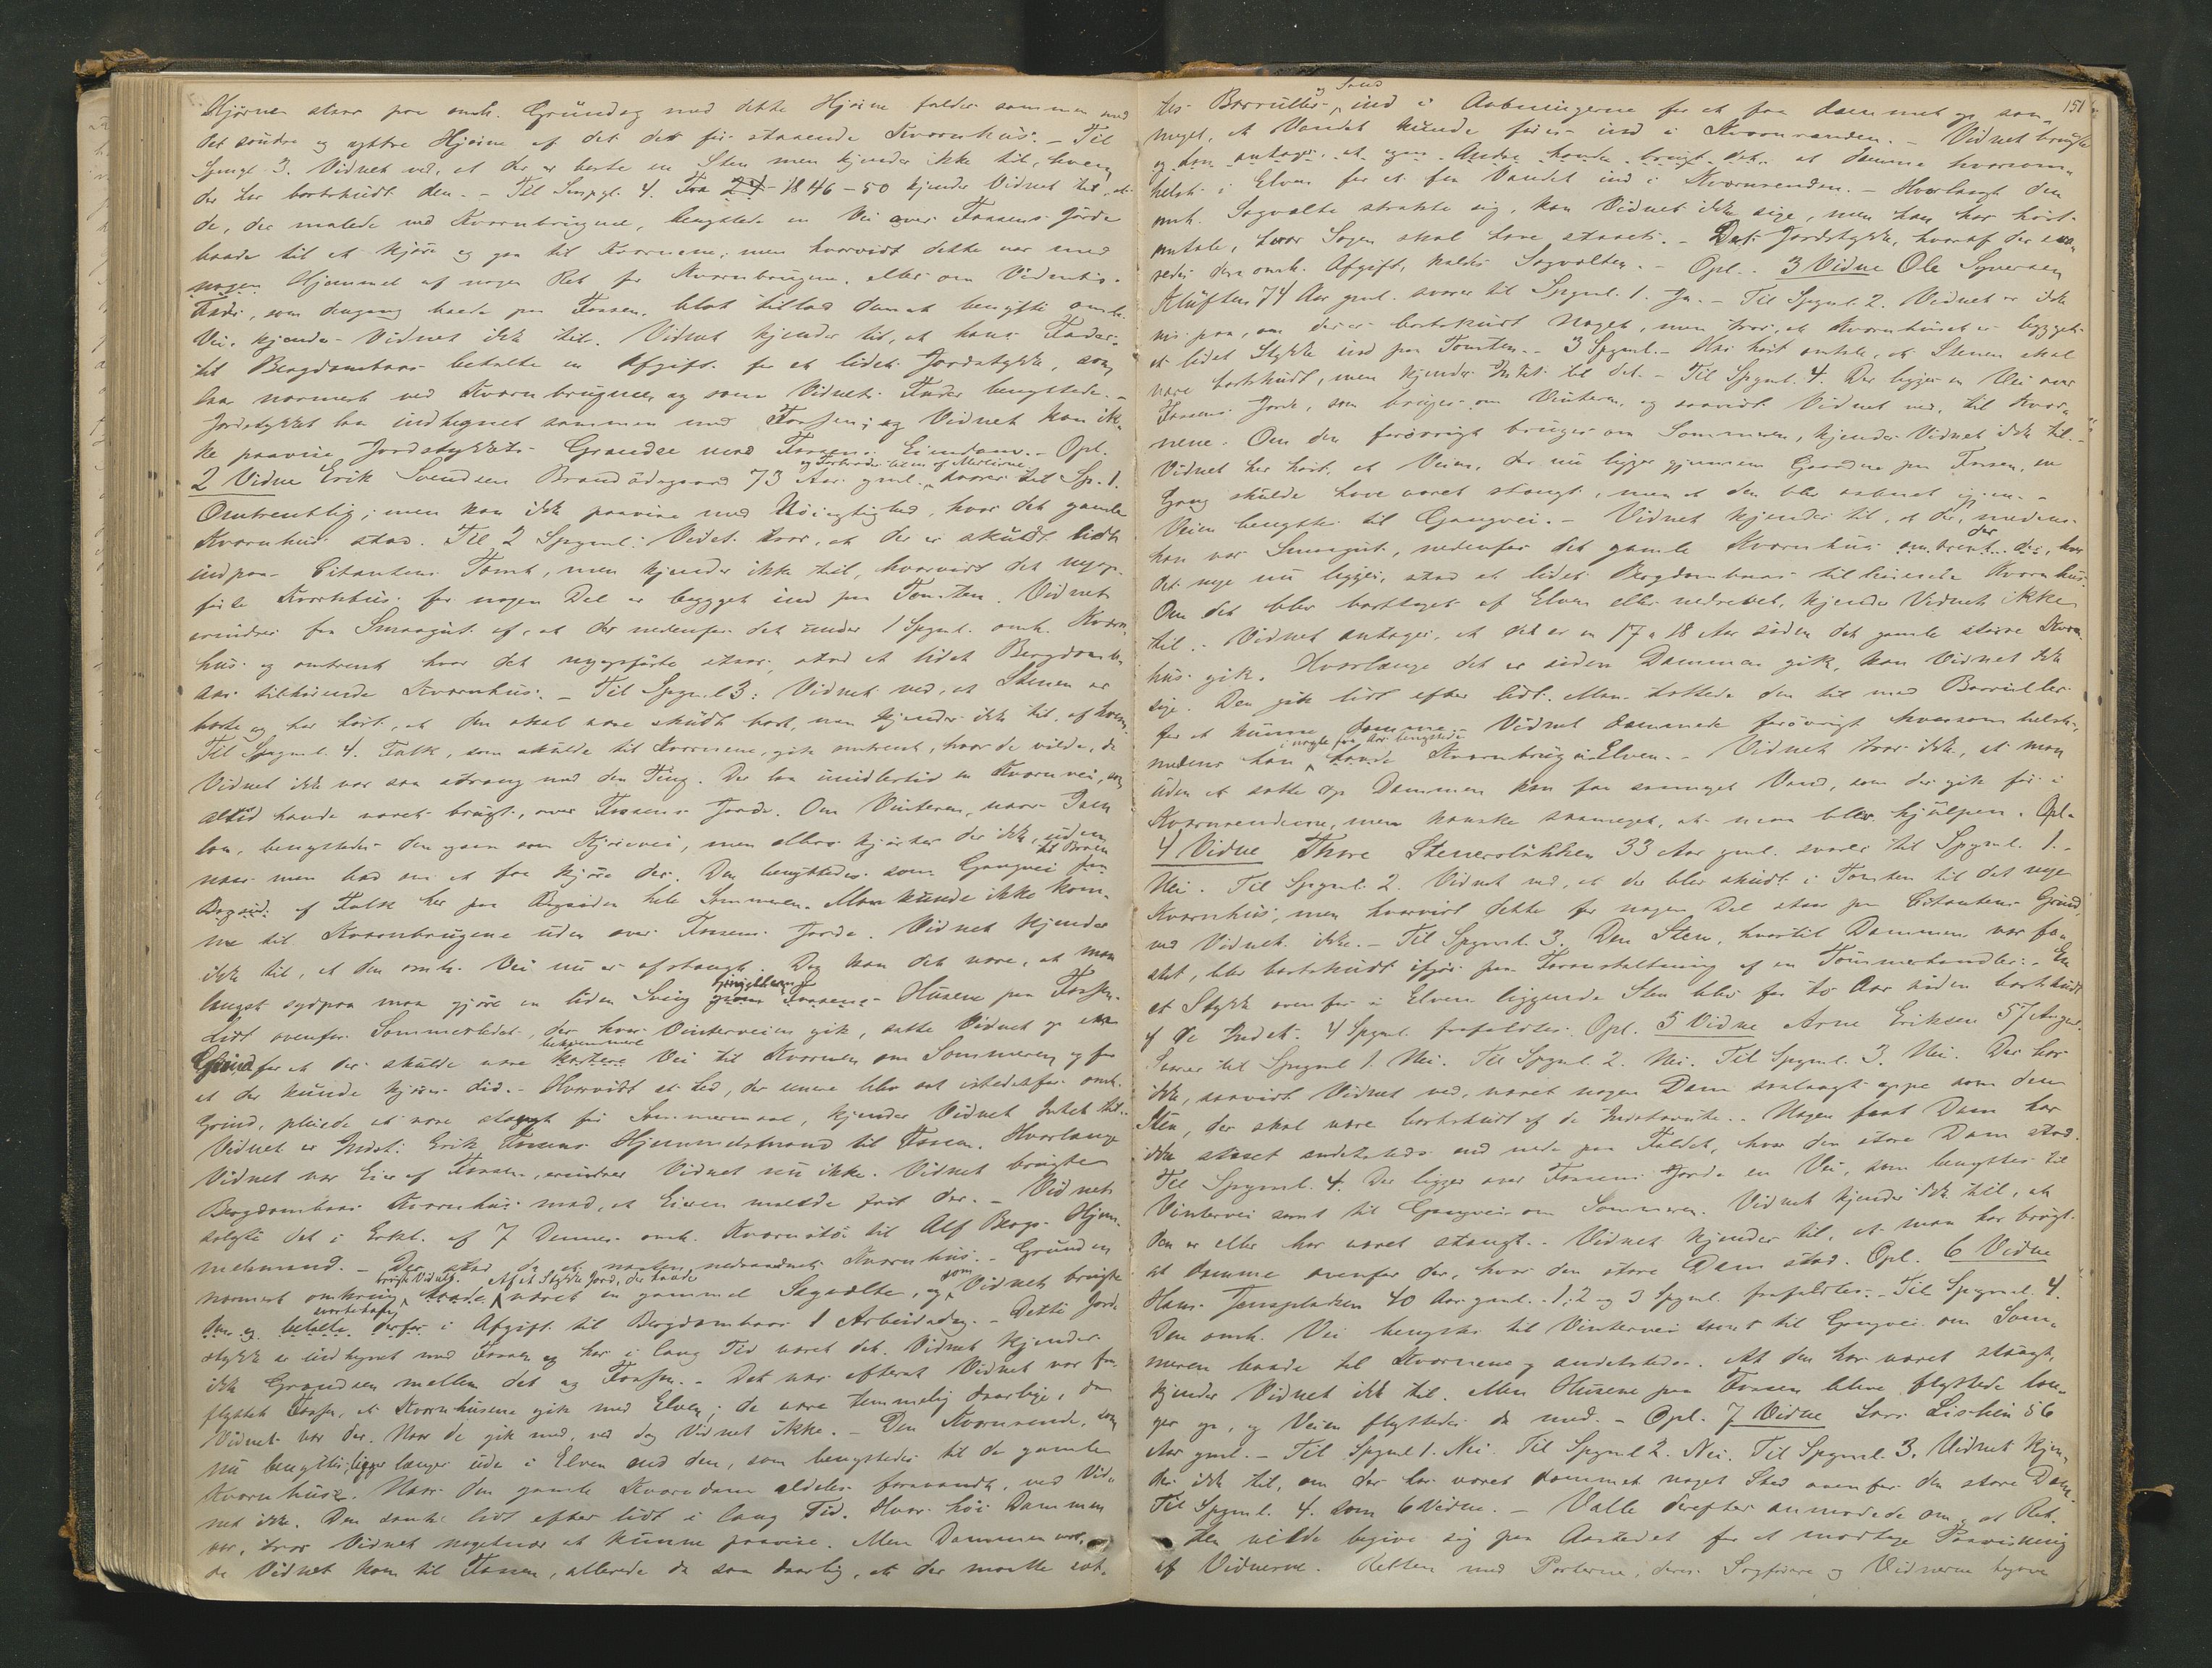 Hjørne staar paa omh. Grundeg med dette Hjørne falder sammen med
det søndre og ydtre Hjørne af det der før staaende Kvarnhus. – Til
Spmgl 3. Vidnet ved, at der er borte en Sten men kjender ikke til, hvem
der har bortskudt den. – Til Spgl. 4. Fra 1846–50 kjender Vidnet til at
de, der malede ved Kvarnbrugene, benyttede en Vei over Fossens Jorde
baade til at kjøre og gaa til Kvarnene; men hvorvidt dette var med
nogen Hjemmel af nogen Ret for Kvarnbrugene eller om Vidnets
Fader, som dengang havde paa Fossen, blot tillod dem at benytte omh.
Vei, kjender Vidnet ikke til. Vidnet kjender til, at hans Fader
til Bergdambaas betalte en Afgift for et lidet Jordstykke, som
laa nærmest ved Kvarnbrugene og som Vidnets Fader benyttede. –
Jordstykket laa indhegnet sammen med Fossen, og Vidnet kan ik-
ke paavise Jordstykkets Grændse mod Fossens Eiendom. – Opl.
2 Vidne Erik Svendsen Brandødegaard 73 Aar gml. svarer til Sp. 1.
Omtrentlig; men kan ikke paavise med Nøiagtighed, hvor det gamle
Kvarnhus stod. Til 2 Spgml: Vidnet tror, at der er skudt lidt
indpaa Citantens Tomt, men kjender ikke til, hvorvidt det nyop-
førte Kvarnhus for nogen Del er bygget ind paa Tomten. Vidnet
erindrer fra Smaagut af, at der nedenfor det under 1 Spgml. omh. Kvarn-
hus og omtrent hvor det nyopførte staar, stod et lidet Bergdam-
baas tilhørende Kvarnhus. – Til Spgml 3: Vidnet ved, at Stenen er
borte og har hørt, at den skal være skudt bort, men kjender ikke til, af hvem.
Til Spgml. 4. Folk, som skulde til Kvarnene, gik omtrent, hvor de vilde, da
Vidnet ikke var saa strang med den Ting. Der laa imidlertid en Kvarnvei, som
altid havde været brugt, over Fossens Jorde. Om Vinteren, naar Isen
laa, benyttedes den ogsaa som Kjørevei, men ellers kjørtes der ikke, uden
naar man bad om at faa kjøre der. Den benyttedes som Gangvei
af Folk her paa Bygsiden hele Sommeren. Man kunde ikke kom-
me til Kvarnbrugene uden over Fossens Jorde. Vidnet kjender
ikke til, at den omh. Vei nu er afstængt. Dog kan det være, at man
længst sydpaa maa gjøre en liden Sving Husene paa Fossen.
Lidt ovenfor Sommerledet, der hvor Vinterveien gik, satte Vidnet op en
Grind for at der skulde være bekvemmere Vei til Kvarnen om Sommeren og for
at der kunde kjøres did. – Hvorvidt et Led, der senere blev sat istedetfor omh.
Grind, pleiede at være stængt før Sommermaal, kjender Vidnet Intet til.
Vidnet er Indst. Erik Fossens Hjemmelsmand til Fossen. Hvorlænge
Vidnet var Eier af Fossen, erindrer Vidnet nu ikke. Vidnet brugte
Bergdambaas Kvarnhus mod, at Eieren malede frit der. – Vidnet
solgte det i Erkl. af 7 Dennes omh. Kvarnstø til Alf Bergs Hjem-
melsmand. – Der stod da et næsten nedraadnet Kvarnhus. – Grunden
nærmest omkring brugte Vidnet. Af et Stykke Jord, der havde været en gammel Sagvolte, og som Vidnet brugte
betalte derfor i Afgift til Bergdambaas 1 Arbeidsdag. – Dette Jord-
stykke er indhegnet med Fossen og har i lang Tid været det. Vidnet kjender
ikke Grændsen mellem det og Fossen. – Det var efterat Vidnet var fra-
flyttet Fossen, at Kvarnhusene gik med Elven; de vare temmelig daarlige, da
Vidnet var der. Naar de gik med, ved dog Vidnet ikke. – Den Kvarnrende, som
nu benyttes, ligger længer ude i Elven end den, som benyttedes til de gamle
Kvarnhuse. Naar den gamle Kvarndam aldeles forsvandt, ved Vid-
net ikke. Den sank lidt efter lidt i lang Tid. Hvor høi Dammen
var, tror Vidnet nogetnær at kunne paavise. Men Dammen var,
da Vidnet kom til Fossen, allerede da saa daarlig, at der maatte sæt-
151
tes Barrutter og Sand ind i Aabningerne for at faa dæmmet op saa-
meget, at Vandet kunde føres ind i Kvarnrenden. – Vidnet brugte
og han antager, at ogsaa Andre havde brugt det, at dæmme hvorsom-
helst i Elven for at faa Vandet ind i Kvarnrenden. – Hvorlangt den
omh. Sagvolte strakte sig, kan Vidnet ikke sige, men han har hørt
omtale, hvor Sagen skal have staaet. – Det Jordstykke, hvoraf der sva-
redes den omh. Afgift, kaldes Sagvolten. – Opl. 3 Vidne Ole Syversen
Kluften 74 Aar gml. svarer til Spgml. 1. Ja. – Til Spgml. 2. Vidnet er ikke
vis paa, om der er bortskudt Noget, men tror, at Kvarnhuset er bygget
et lidet Stykke ind paa Tomten. – 3 Spgml. – Har hørt omtale, at Stenen skal
være bortskudt, men kjender Intet til det. – Til Spgml. 4. Der ligger en Vei over
Fossens Jorde, som bruges om Vinteren, og saavidt Vidnet ved, til Kvar-
nene. Om den forøvrigt bruges om Sommeren, kjender Vidnet ikke til. –
Vidnet har hørt, at Veien, der nu ligger gjennem Gaarden paa Fossen, en
Gang skulde have været stængt, men at den blev aabnet igjen. –
Veien benyttes til Gangvei. – Vidnet kjender til, at der, medens
han var Smaagut, nedenfor det gamle Kvarnhus omtrent der, hvor
det nye nu ligger, stod et lidet Bergdambaas tilhørende Kvarnhus.
Om det blev borttaget af Elven eller nedrevet, kjender Vidnet ikke
til. – Vidnet antager, at det er en 17 a 18 Aar siden det gamle større Kvarn-
hus gik. Hvorlænge det er siden Dammen gik, kan Vidnet ikke
sige. Den gik lidt efter lidt. Man tættede den til med Barrutter
for at kunne dæmme. Vidnet dæmmede forøvrigt hvorsomhelst,
medens han i nogle faa Aar benyttede Kvarnbrug i Elven. – Vidnet tror ikke, at man
uden at sætte op Dammen kan faa saameget Vand, som der gik før i
Kvarnrenderne, men kanske saameget, at man blev hjulpen. Opl.
4 Vidne Thore Stenersløkken 33 Aar gml. svarer til Spgml. 1. –
Nei. Til Spgml. 2. Vidnet ved, at der blev skudt i Tomten til det nye
Kvarnhus, men hvorvidt dette for nogen Del staar paa Citantens Grund,
ved Vidnet ikke. – Til Spgml. 3. Den Sten, hvortil Dammen var fæ-
stet, blev bortskudt ifjor paa Foranstaltning af en Tømmerhandler. – En
et Stykke ovenfor i Elven liggende Sten blev for to Aar siden bortskudt
af de Indst. 4 Spgml. frafaldtes. Opl. 5 Vidne Arne Eriksen 57 Aar gml.
Svarer til Spgml 1. Nei. Til Spgml. 2. Nei. Til Spgml. 3. Nei. Der har
ikke, saavidt Vidnet ved, været nogen Dam saalangt oppe som den
Sten, der skal være bortskudt af de Indstævnte. – Nogen fast Dam har
ikke staaet andetsteds end nede paa Faldet, hvor den store Dam stod.
Til Spgml. 4. Der ligger over Fossens Jorde en Vei, som benyttes til
Vintervei samt til Gangvei om Sommeren. Vidnet kjender ikke til, at
den er eller har været stængt. – Vidnet kjender til, at man har brugt
at dæmme ovenfor der, hvor den store Dam stod. Opl. 6 Vidne
Hans Jensplatsen 40 Aar gml. 1, 2 og 3 Spgml. frafaldtes. – Til Spgml. 4.
Den omh. Vei benyttes til Vintervei samt til Gangvei om Som-
meren baade til Kvarnene og andetsteds. At den har været stængt,
kjender Vidnet ikke til. Men Husene paa Fossen bleve flyttede læn-
ger op, og Veien flyttedes da med. – Opl. 7 Vidne Lars Lislien 56
Aar gml. – Til Spgml 1. Nei. Til Spgml 2. Nei. Til Spgml. 3. Vidnet kjen-
der ikke til, om der har været dæmmet noget Sted ovenfor den store Dam.
Til Spgml. 4. som 6 Vidne. – Valle derefter anmodede om, at Ret-
ten vilde begive sig paa Aastedet for at modtage Paavisning
af Vidnerne. Retten med Parterne, deres Sagførere og Vidnerne begav